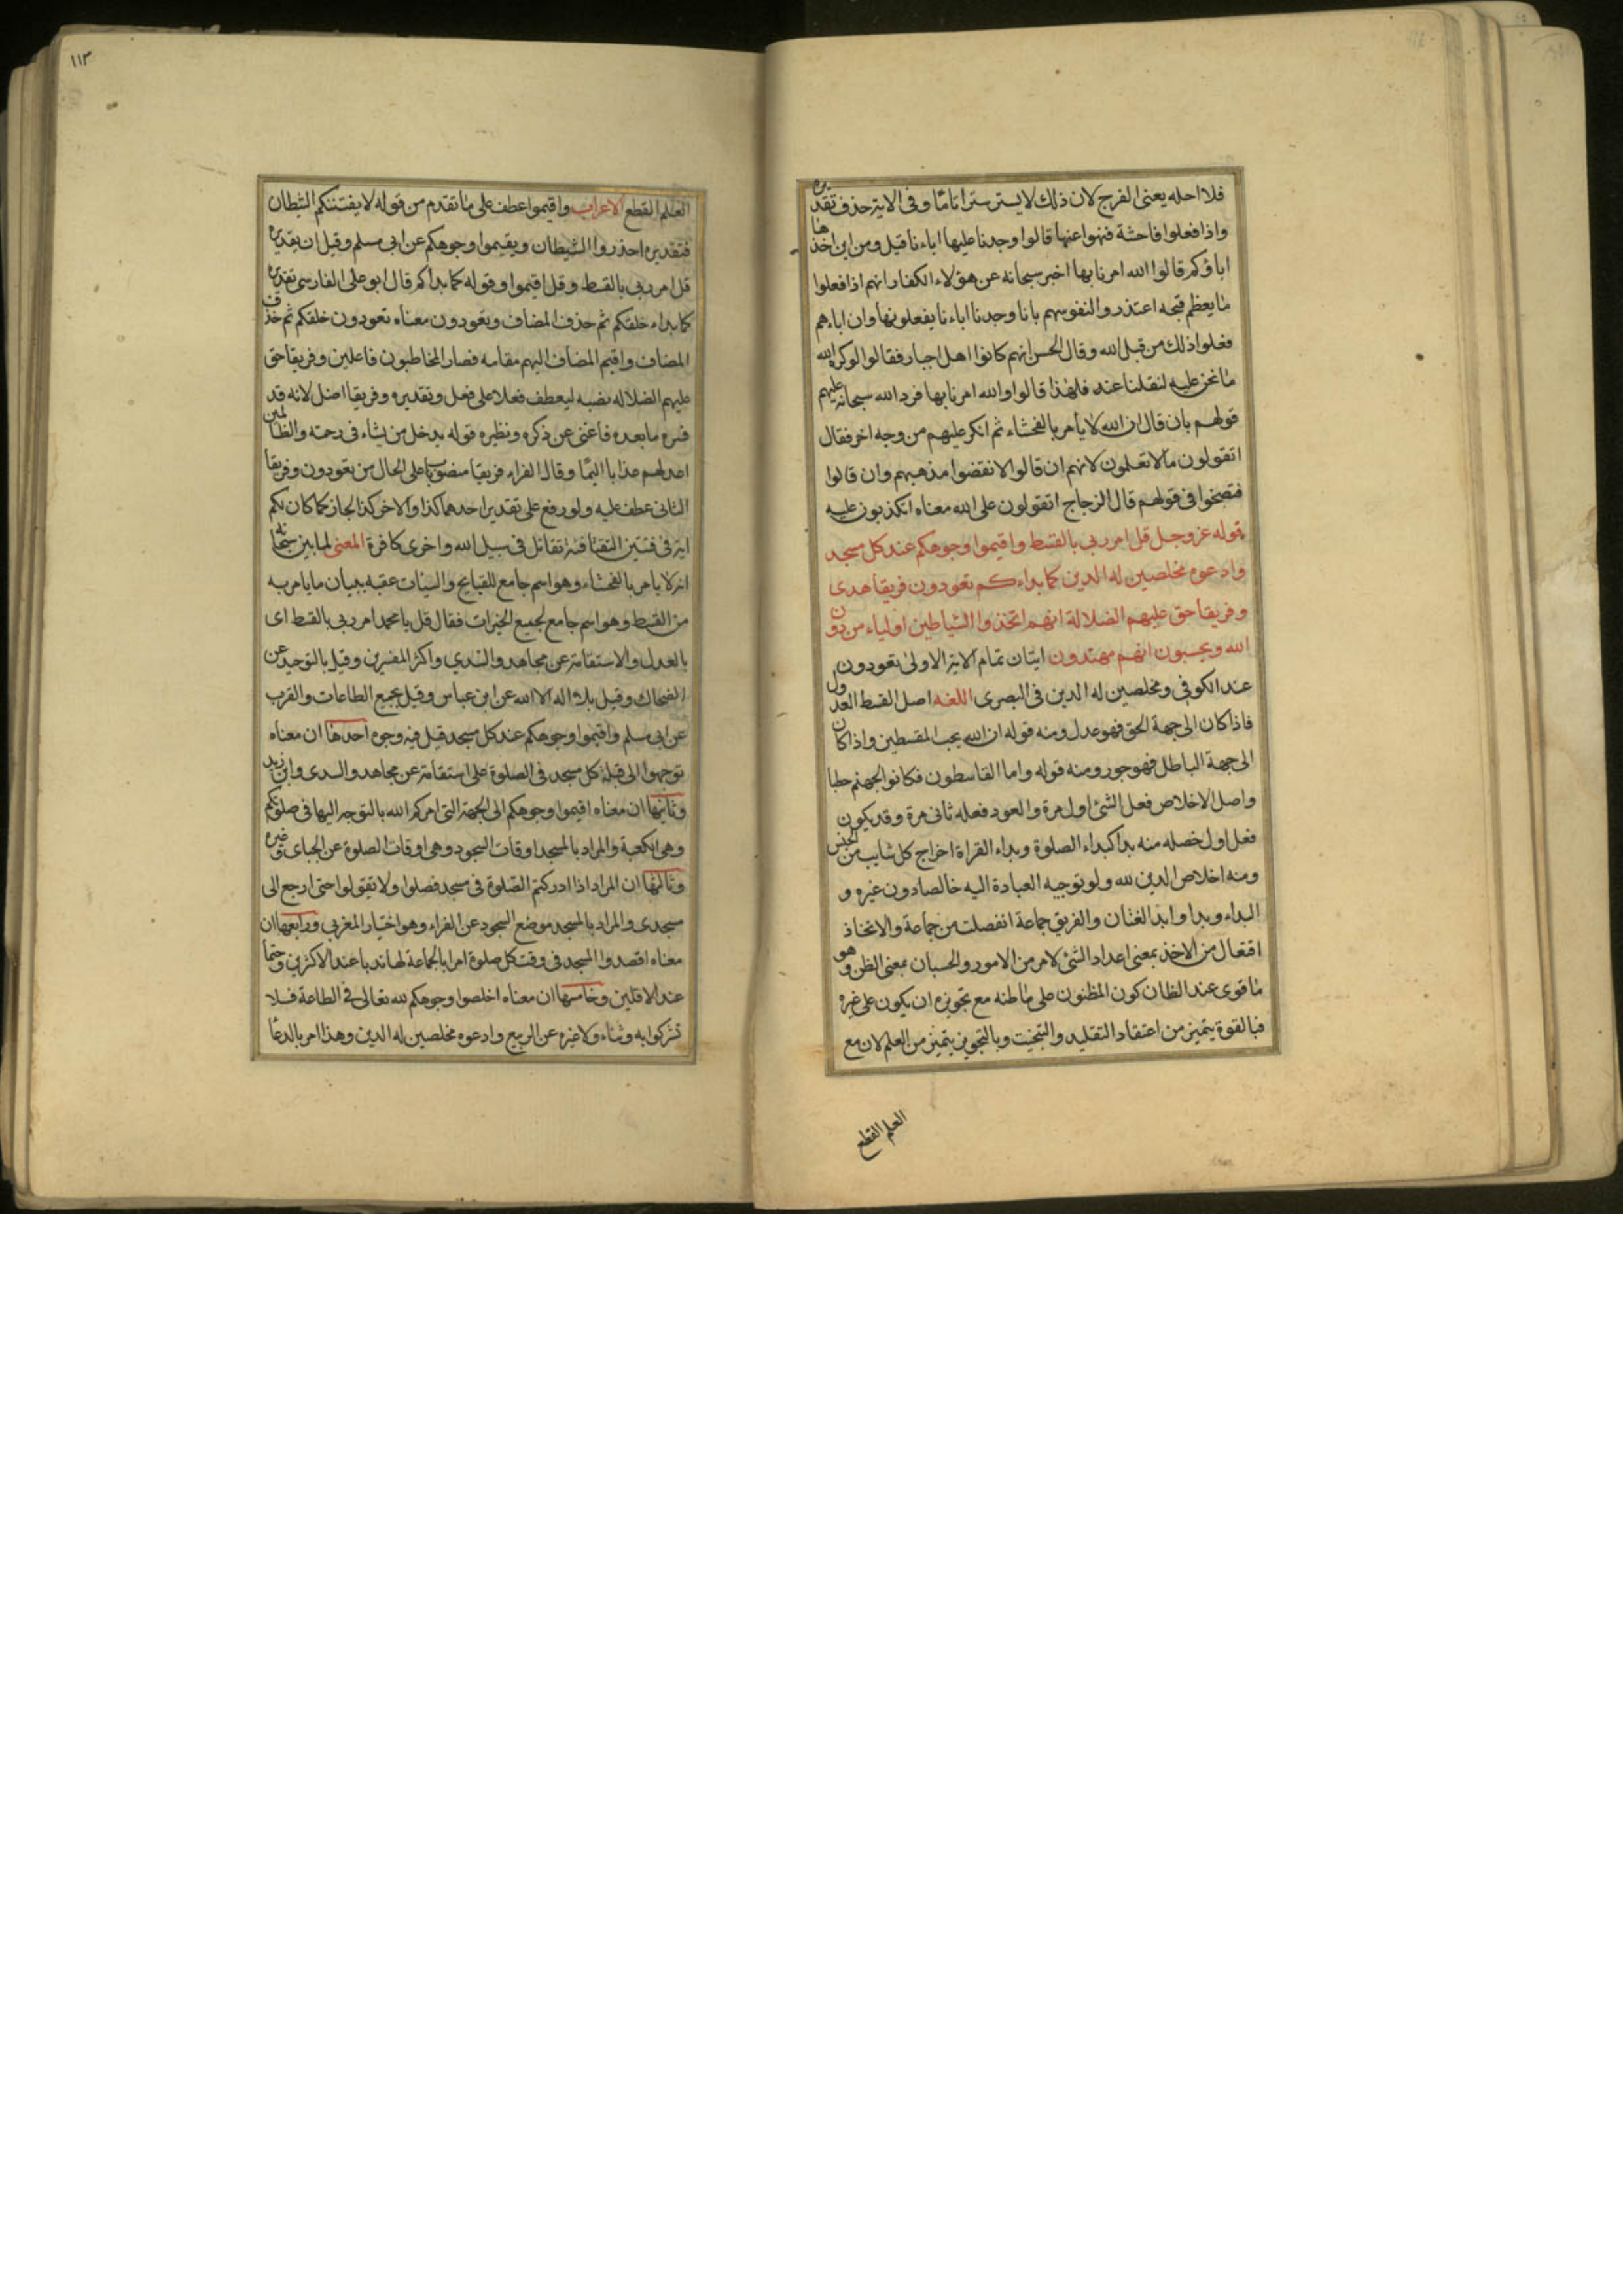 فلا احله يعنى الفرج لان ذلك لا يستر سترا تاما وفى الاية حذف تقديره
واذا فعلوا فاحشة فنهوا عنها قالوا وجدنا عليها اباءنا قيل ومن اين اخذها
اباؤكم قالوا الله امرنا بها اخبر سبحانه عن هؤلاء الكفار انهم اذا فعلوا
ما يعظم قبحه اعتذروا لنفوسهم بانا وجدنا اباءنا يفعلونها وان اباءهم
فعلوا ذلك من قبل الله وقال الحسن انهم كانوا اهل اجبار فقالوا لو كره الله
ما نحن عليه لنقلنا عنه فلهذا قالوا والله امرنا بها فرد الله سبحانه عليهم
قولهم بان قال ان الله لا يأمر بالفحشاء ثم انكر عليهم من وجه اخر فقال
اتقولون ما لا تعلمون لانهم ان قالوا لا نقضوا مذهبهم وان قالوا
فتضحوا فى قولهم قال الزجاج اتقولون على الله معناه اتكذبون عليه
قوله عز وجل قل امر ربى بالقسط واقيموا وجوهكم عند كل مسجد
وادعوه مخلصين له الدين كما بداءكم تعودون فريقا هدى
وفريقا حق عليهم الضلالة انهم اتخذوا الشياطين اولياء من دون
الله ويحسبون انهم مهتدون ايتان تمام الاية الاولى تعودون
عند الكوفى ومخلصين له الدين فى البصرى اللغه اصل القسط العدول
فاذا كان الى جهة الحق فهو عدل ومنه قوله ان الله يحب المقسطين واذا كان
الى جهة الباطل فهو جور ومنه قوله واما القاسطون فكانوا لجهنم حطبا
واصل الاخلاص فعل الشئ اول مرة والعود فعله ثانى مرة وقد يكون
فعل اول خصله منه بدا كبداء الصلوة وبداء القراة اخراج كل شايب من الجنس
ومنه اخلاص الدين لله ولو توجيه العبادة اليه خالصا دون غيره و
البداء وبدا وابدا لغتان والفريق جماعة انفصلت من جماعة والاتخاذ
افتعال من الاخذ بمعنى اعداد الشئ لامر من الامور والحسبان بمعنى الظن وهو
ما قوى عند الظان كون المظنون على ما ظنه مع تجويزه ان يكون على غيره
فبالقوة يتميز من اعتقاد التقليد والتبخيت وبالتجويز يتميز من العلم لان مع
العلم القطع
١١٣
العلم القطع الاعراب واقيموا عطف على ما تقدم من قوله لا يفتننكم الشيطان
فتقديره احذروا الشيطان ويقيموا وجوهكم عن ابى مسلم وقيل ان تقديره
قل امر ربى بالقسط وقل اقيموا وقوله كما بداكم قال ابو على الفارسى تقديره
كما بداء خلقكم ثم حذف المضاف وتعودون معناه تعودون خلقكم ثم حذف
المضاف واقيم المضاف اليهم مقامه فصار المخاطبون فاعلين وفريقا حق
عليهم الضلاله نصبه ليعطف فعلا على فعل وتقديره وفريقا اضل لانه قد
فسره ما بعده فاغنى عن ذكره ونظيره قوله يدخل من يشاء فى رحمته والظالمين
اعد لهم عذابا اليما وقال الفراء فريقا منصوبا على الحال من تعودون وفريقا
الثانى عطف عليه ولو رفع على تقدير احدهما كذا والاخر كذا لجاز كما كان لكم
اية فى فئتين التقتا فئة تقاتل فى سبيل الله واخرى كافرة المعنى لما بين سبحانه
انه لا يامر بالفحشاء وهو اسم جامع للقبايح والسيئات عقبه ببيان ما يامر به
من القسط وهو اسم جامع لجميع الخيرات فقال قل يا محمد امر ربى بالقسط اى
بالعدل والاستقامة عن مجاهد والسدي واكثر المفسرين وقيل بالتوحيد عن
الضحاك وقيل بلا اله الا الله عن ابن عباس وقيل بجميع الطاعات والقرب
عن ابى مسلم واقيموا وجوهكم عند كل مسجد قيل فيه وجوه احدها ان معناه
توجهوا الى قبله كل مسجد فى الصلوة على استقامة عن مجاهد والسدى وابن زيد
وثانيها ان معناه اقيموا وجوهكم الى الجهة التى امركم الله بالتوجه اليها فى صلوتكم
وهى الكعبة والمراد بالمسجد اوقات السجود وهى اوقات الصلوة عن الجباى وغيره
وثالثها ان المراد اذا ادركتم الصلوة فى مسجد فصلوا ولا تقولوا حتى ارجع الى
مسجدى والمراد بالمسجد موضع السجود عن الفراء وهو اختيار المغربى ورابعها ان
معناه اقصدوا المسجد فى وقت كل صلوة امرا بالجماعة لها ندبا عند الاكثرين وحتما
عند الاقلين وخامسها ان معناه اخلصوا وجوهكم لله تعالى فى الطاعة فلا
تشركوا به وثناء ولا غيره عن الربيع وادعوه مخلصين له الدين وهذا امر بالدعا